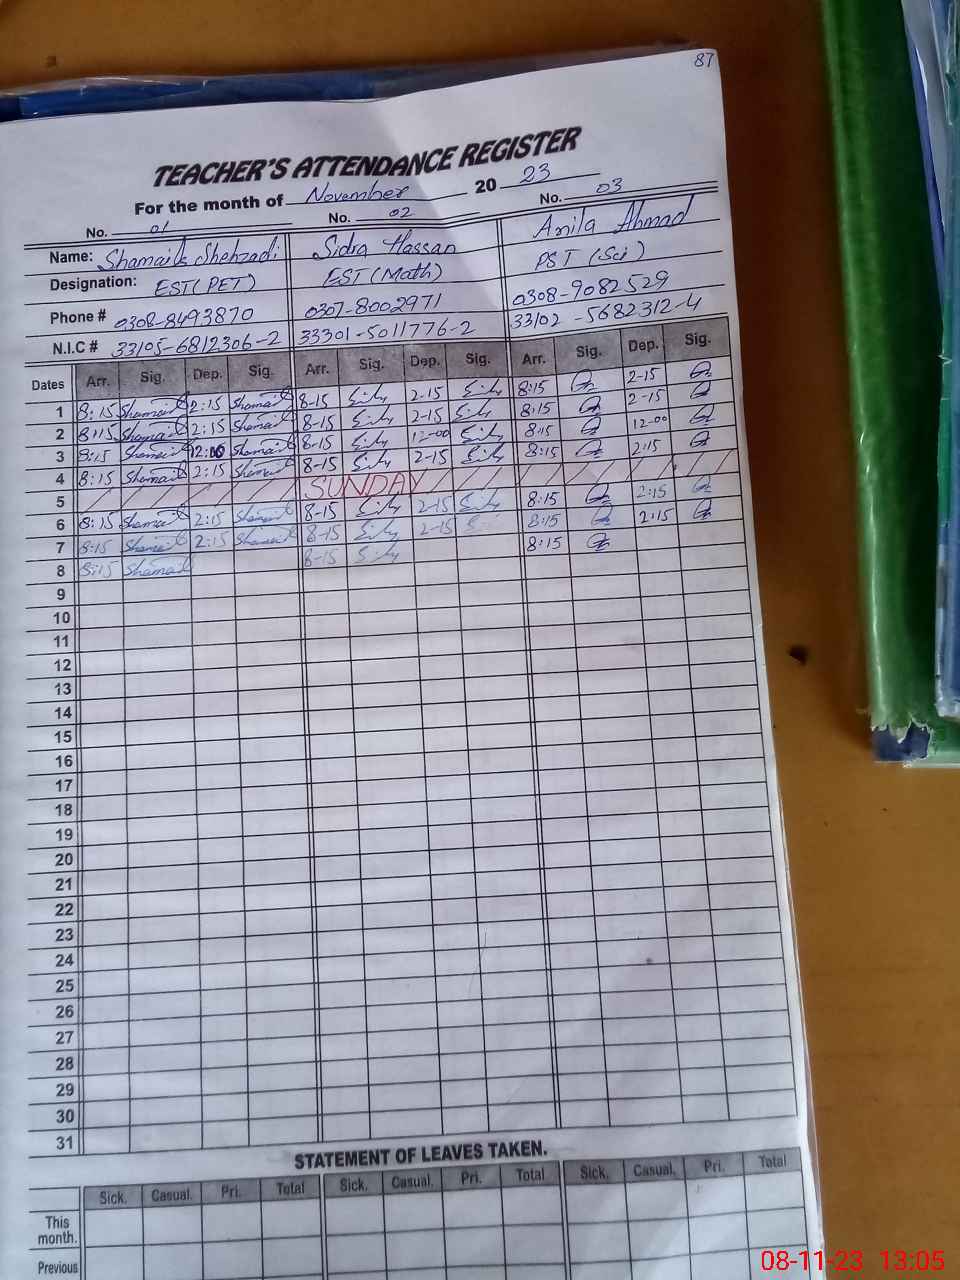 87
TEACHER'S ATTENDANCE REGISTER
For the month of November 20 23
No. 01 No. 02 No. 03
Name: Shamaila Shehzadi Sidra Hassan Anila Ahmad
Designation: EST(PET) EST(Math) PST (Sci)
Phone # 0308-8493870 0307-8002971 0308-9082529
N.I.C # 33105-6812306-2 33301-5011776-2 33102-5682312-4
Dates Arr. Sig. Dep. Sig. Arr. Sig. Dep. Sig. Arr. Sig. Dep. Sig.
1 8:15 Shamaila 2:15 Shamaila 8-15 2-15 8:15 2-15
2 8:15 Shamaila 2:15 Shamaila 8-15 2-15 8:15 2-15
3 8:15 Shamaila 12:00 Shamaila 8-15 12-00 8:15 12-00
4 8:15 Shamaila 2:15 Shamaila 8-15 2-15 8:15 2:15
5 SUNDAY
6 8:15 Shamaila 2:15 Shamaila 8-15 2-15 8:15 2:15
7 8:15 Shamaila 2:15 Shamaila 8-15 2-15 8:15 2:15
8 8:15 Shamaila 8-15 8:15
9
10
11
12
13
14
15
16
17
18
19
20
21
22
23
24
25
26
27
28
29
30
31
STATEMENT OF LEAVES TAKEN.
Sick. Casual. Pri. Total Sick. Casual. Pri. Total Sick. Casual. Pri. Total
This month.
Previous
08-11-23 13:05